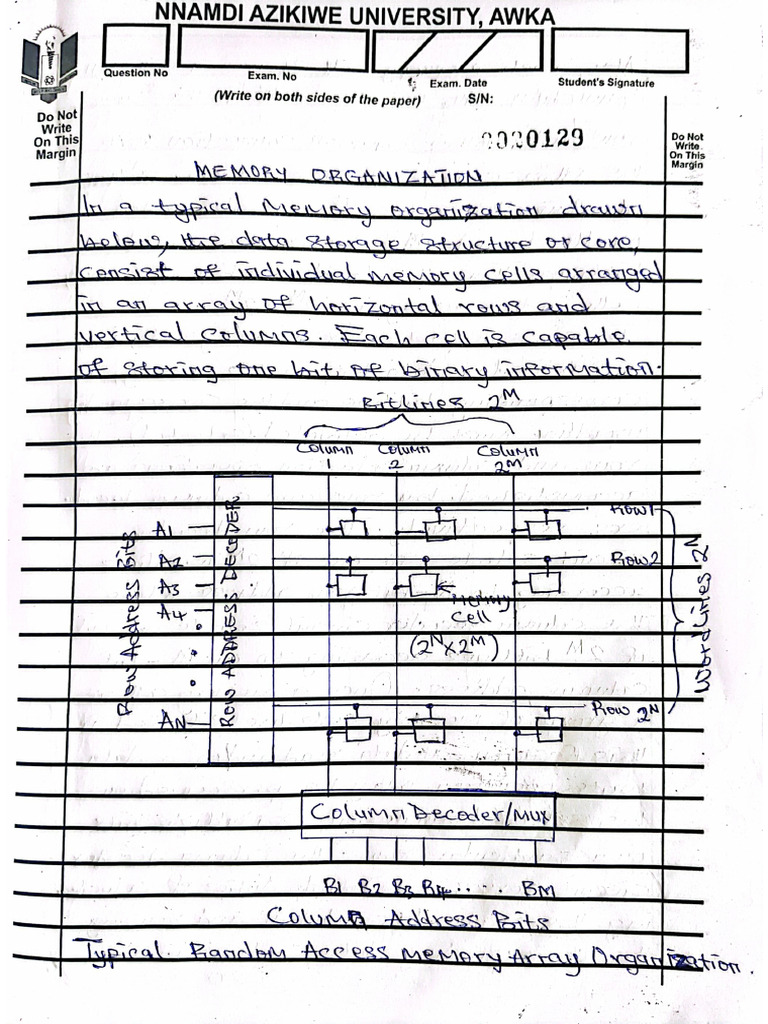 NNAMDI AZIKIWE UNIVERSITY, AWKA
Question No
Exam. No
Exam. Date
Student's Signature
(Write on both sides of the paper)
S/N:
Do Not
Write
On This
Margin
Do Not
Write
On This
Margin
0020129
MEMORY ORGANIZATION
In a typical memory organization drawn
below, the data storage structure or core,
consist of individual memory cells arranged
in an array of horizontal rows and
vertical columns. Each cell is capable
of storing one bit of binary information.
Bitlines 2^M
Column 1
Column 2
Column 2^M
Row Address Bits
A1
A2
A3
A4
AN
ROW ADDRESS DECODER
Row 1
Row 2
Memory
Cell
(2^N x 2^M)
Row 2^N
Word Lines 2^N
Column Decoder/Mux
B1 B2 B3 B4 ..... BM
Column Address Bits
Typical Random Access Memory Array Organization.